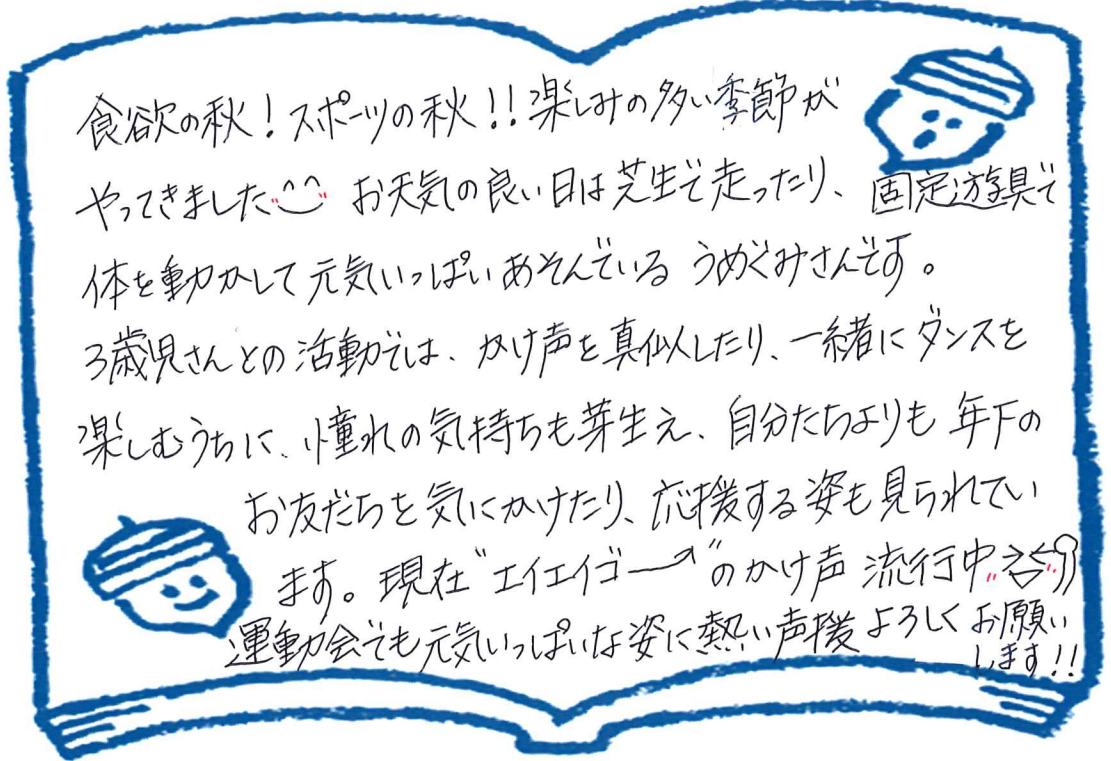 食欲の秋！スポーツの秋！！楽しみの多い季節が
やってきました^^ お天気の良い日は芝生で走ったり、固定遊具で
体を動かして元気いっぱいあそんでいる うめぐみさんです。
3歳児さんとの活動では、かけ声を真似したり、一緒にダンスを
楽しむうちに、憧れの気持ちも芽生え、自分たちよりも年下の
お友だちを気にかけたり、応援する姿も見られてい
ます。現在“エイエイゴー”のかけ声 流行中><
運動会でも元気いっぱいな姿に熱い声援よろしくお願い
します！！